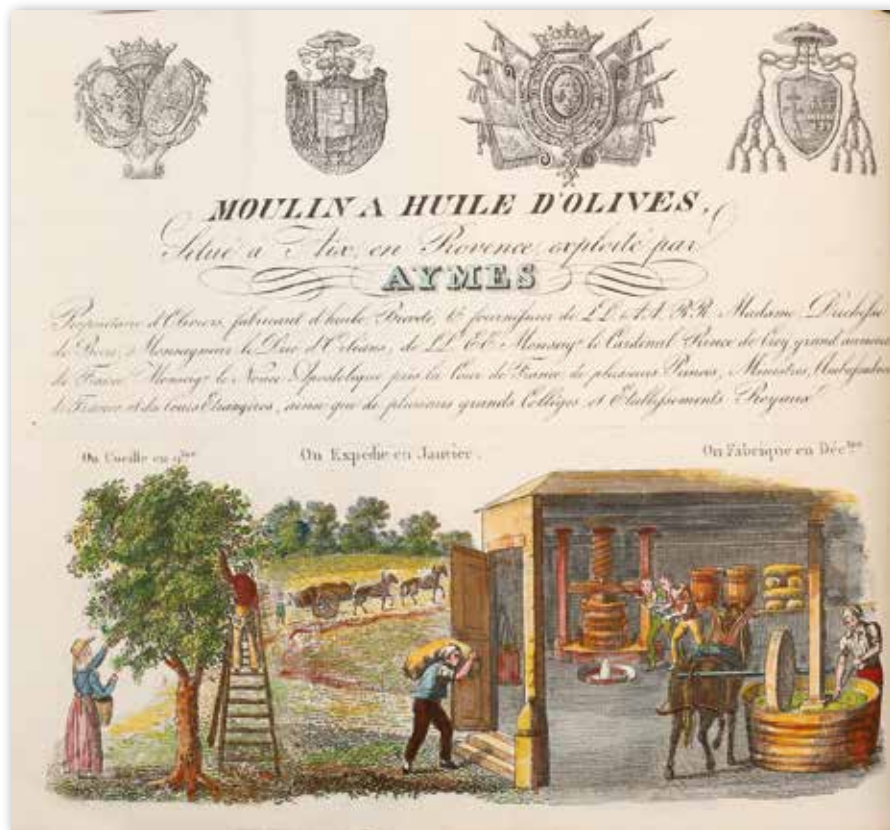 MOULIN A HUILE D'OLIVES,
Situé a Aix, en Provence, exploité par
AYMES
Propriétaire d'Oliviers, fabricant d'huile, Breveté, & fournisseur de LL. AA. RR. Madame, Duchesse
de Berri, Monseigneur le Duc d'Orléans, de LL. EE. Monseigr. le Cardinal Prince de Croy, grand aumonier
de France, Monseigr. le Nonce Apostolique près la Cour de France, de plusieurs Princes, Ministres, Ambassadeurs
de France et des Cours Etrangères, ainsi que de plusieurs grands Collèges et Etablissements Royaux.
On Cueille en 9bre
On Expédie en Janvier.
On Fabrique en Décbre